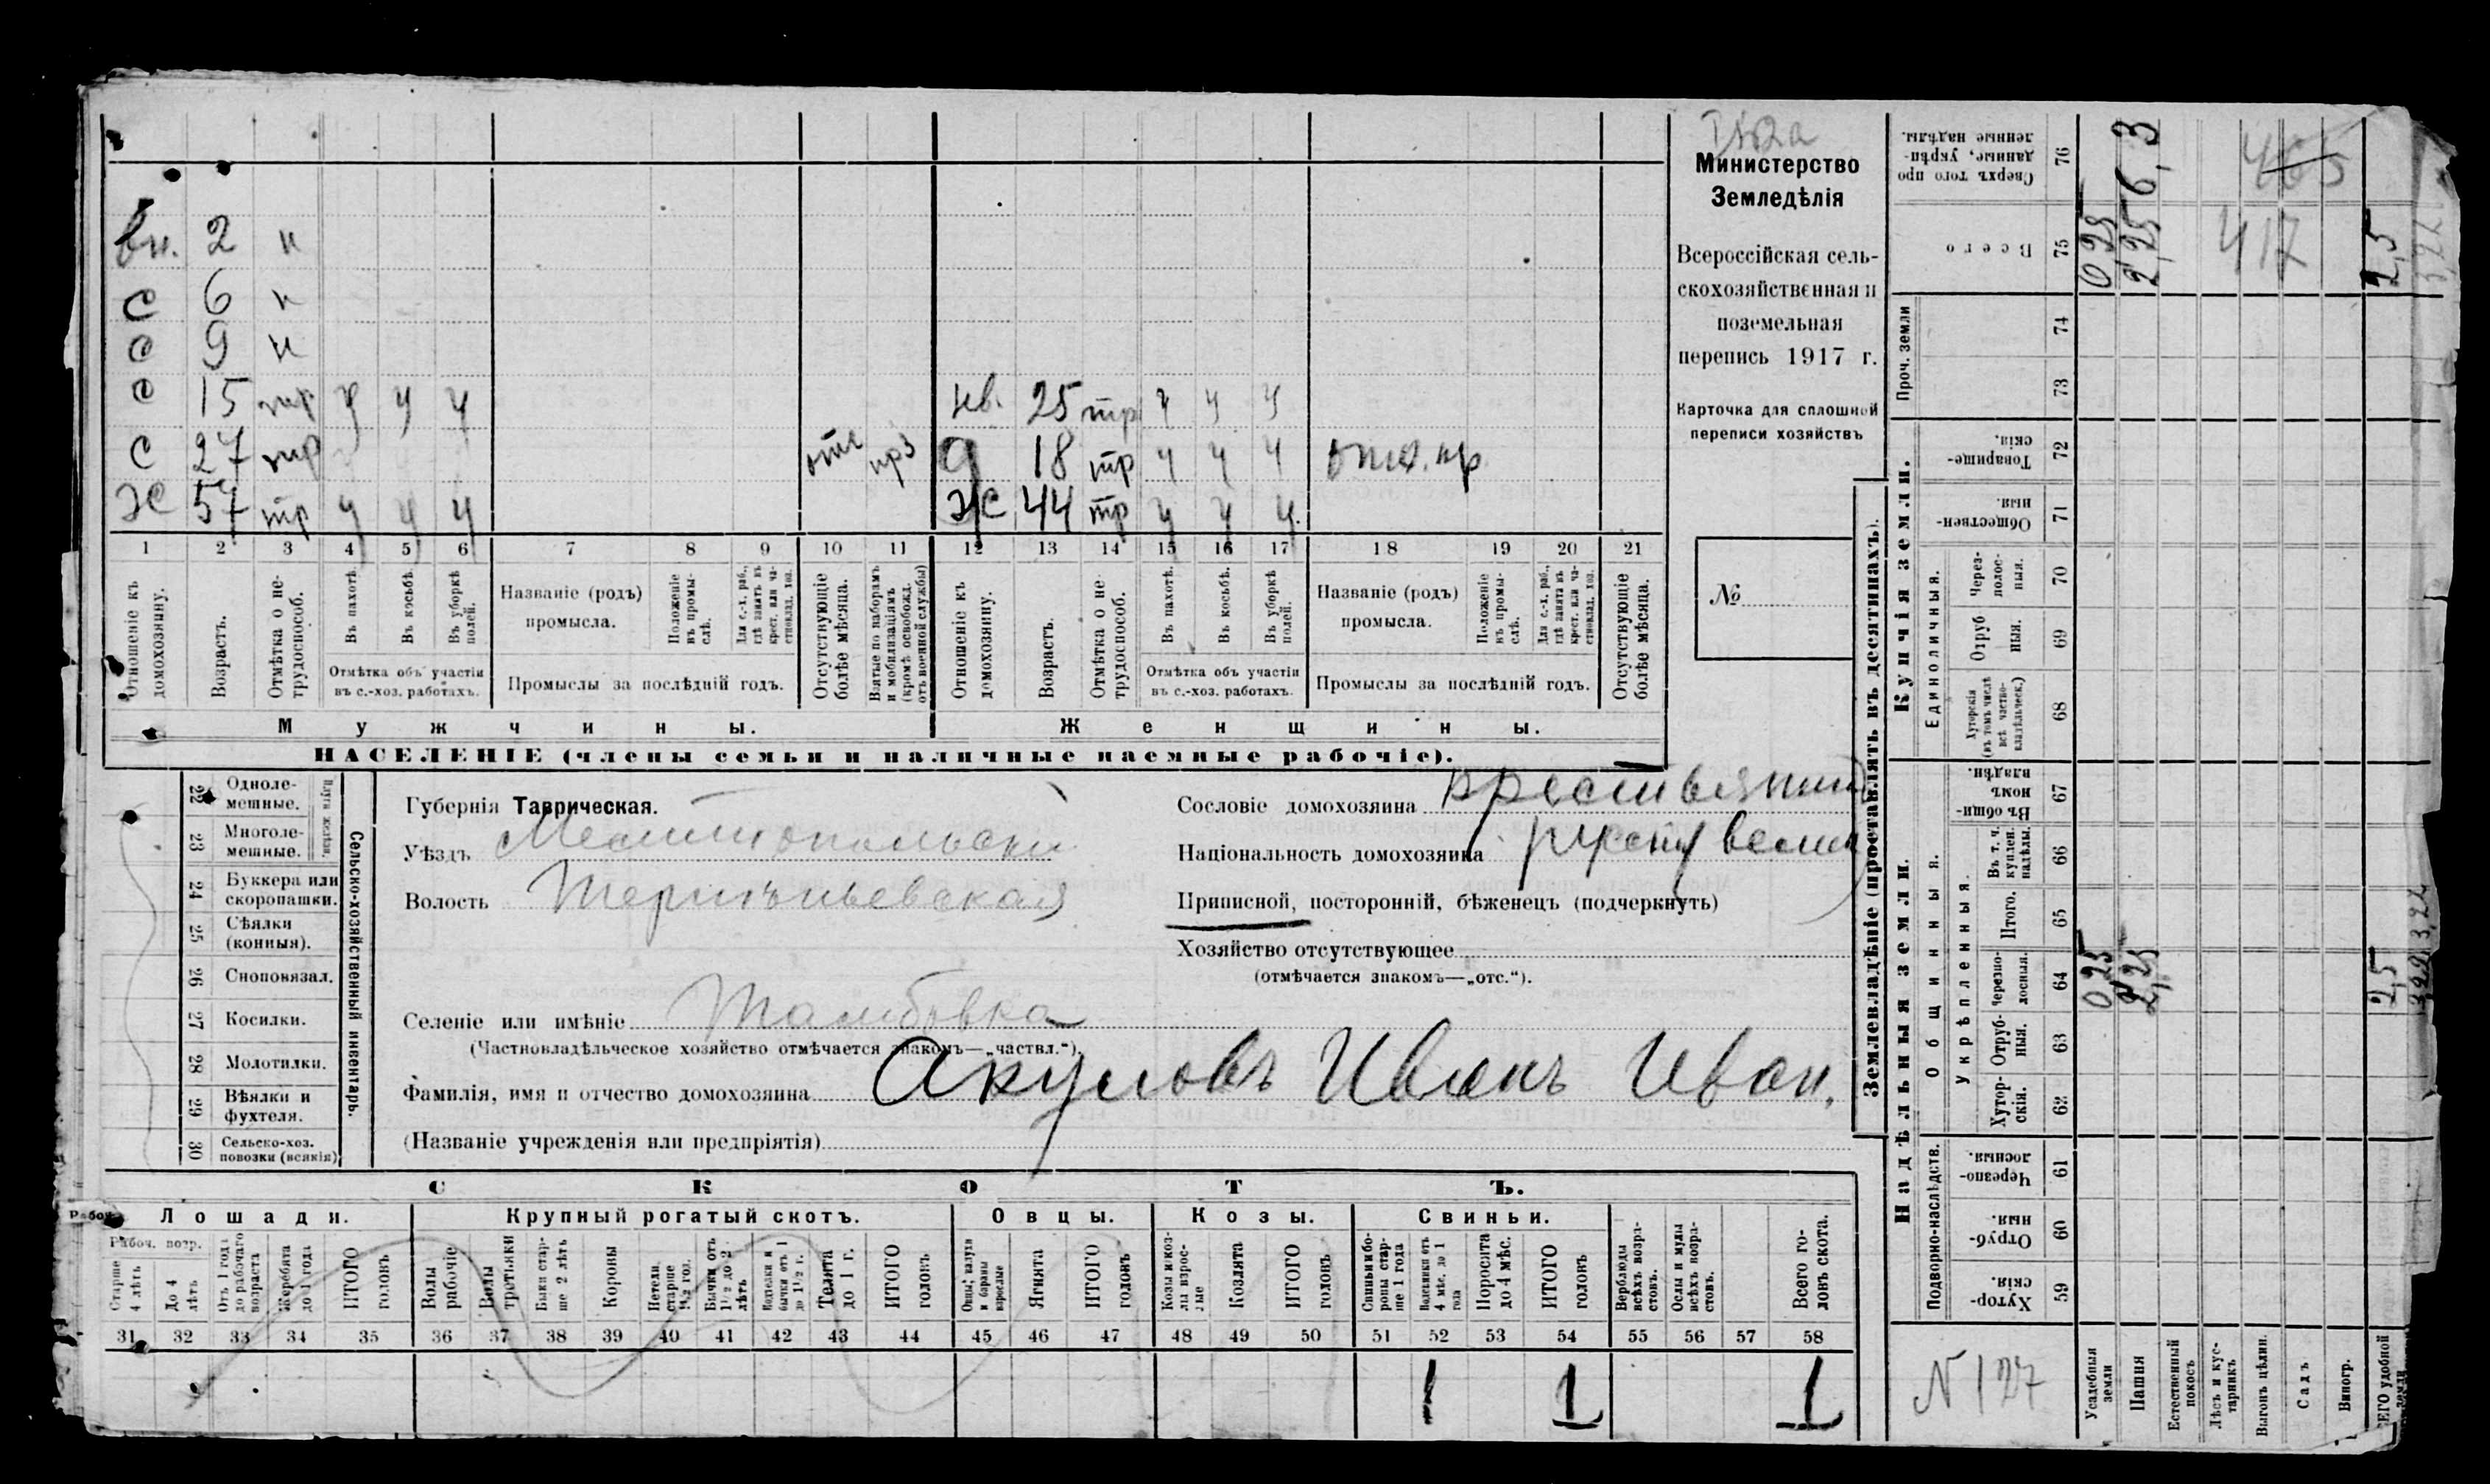 вн. 2 н
с 6 н
с 9 н
с 15 тр ч ч ч
нв. 25 тр ч ч ч
с 27 тр
д 18 тр ч ч ч
ж 44 тр ч ч ч
57 тр ч ч ч
1 2 3 4 5 6 7 8 9 10 11 12 13 14 15 16 17 18 19 20 21
Отношеніе къ домохозяину.
Возрастъ.
Отмѣтка о нетрудоспособ.
Въ пахотѣ.
Въ косьбѣ.
Въ уборкѣ полей.
Отмѣтка объ участіи
въ с.-хоз. работахъ.
Названіе (родъ)
промысла.
Положеніе въ промыслѣ.
Промыслы за послѣдній годъ.
Отсутствующіе болѣе мѣсяца.
Взятые по наборамъ и мобилизаціямъ (кромѣ освобожд. отъ военной службы)
Отношеніе къ домохозяину.
Возрастъ.
Отмѣтка о нетрудоспособ.
Въ пахотѣ.
Въ косьбѣ.
Въ уборкѣ полей.
Отмѣтка объ участіи
въ с.-хоз. работахъ.
Названіе (родъ)
промысла.
Положеніе въ промыслѣ.
Промыслы за послѣдній годъ.
Отсутствующіе болѣе мѣсяца.
Мужчины.
Женщины.
НАСЕЛЕНІЕ (члены семьи и наличные наемные рабочіе).
Министерство
Земледѣлія
Всероссійская сель-
скохозяйственная и
поземельная
перепись 1917 г.
Карточка для сплошной
переписи хозяйствъ
№
Сельско-хозяйственный инвентарь.
22 Одноле-
мешные.
23 Многоле-
мешные.
24 Буккера или
скоропашки.
25 Сѣялки
(конныя).
26 Сноповязал.
27 Косилки.
28 Молотилки.
29 Вѣялки и
фухтеля.
30 Сельско-хоз.
повозки (всякія)
Губернія Таврическая.
Уѣздъ Мелитопольскій
Волость Терпѣньевская
Селеніе или имѣніе Тамбовка
(Частновладѣльческое хозяйство отмѣчается знакомъ—„частвл.“).
Фамилія, имя и отчество домохозяина Акуловъ Иванъ Иван.
(Названіе учрежденія или предпріятія)
Сословіе домохозяина крестьянин
Національность домохозяина
Приписной, посторонній, бѣженецъ (подчеркнуть)
Хозяйство отсутствующее
(отмѣчается знакомъ—„отс.“).
СКОТЪ.
Лошади. Крупный рогатый скотъ. Овцы. Козы. Свиньи.
Рабоч. возр.
Старше 4 лѣтъ
До 4 лѣтъ
Отъ 1 года до рабочаго возраста
Жеребята до 1 года
ИТОГО головъ
Волы рабочіе
Волы третьяки
Быки старше 2 лѣтъ
Коровы
Нетели старше 1½ год.
Бычки отъ 1½ до 2 лѣтъ
Телята до 1 г.
ИТОГО головъ
Ягнята
ИТОГО головъ
Козлята
ИТОГО головъ
Поросята до 4 мѣс.
ИТОГО головъ
Верблюды всѣхъ возрастовъ.
Ослы и мулы всѣхъ возрастовъ.
Всего головъ скота.
31 32 33 34 35 36 37 38 39 40 41 42 43 44 45 46 47 48 49 50 51 52 53 54 55 56 57 58
1 1 1
Землевладѣніе (проставлять въ десятинахъ).
Надѣльныя земли.
Купчія земли.
Проч. земли
Подворно-наслѣдств.
Общинныя.
Укрѣпленныя.
Единоличныя.
Хутор-
скія. 59
Отруб-
ныя. 60
Черезпо-
лосныя. 61
Хутор-
скія. 62
Отруб-
ныя. 63
Черезпо-
лосныя. 64
Итого. 65
Въ т. ч.
куплен.
надѣлы. 66
Въ общи-
номъ
владѣн. 67
Хуторскія
(въ томъ числѣ
всѣ частно-
владѣльческ.) 68
Отруб
ныя. 69
Через-
полос-
ныя. 70
Обществен-
ныя. 71
Товарище-
скія. 72
73
74
Всего 75
Сверхъ того про
данные, укрѣп-
ленные надѣлы. 76
N 127
Усадебныя земли 0,25 0,25
Пашня 2,25 2,25 6,3
Естественный покосъ
Лѣсъ и кустарникъ
Выгонъ цѣлин.
Садъ
Виногр.
417
2,5 2,5